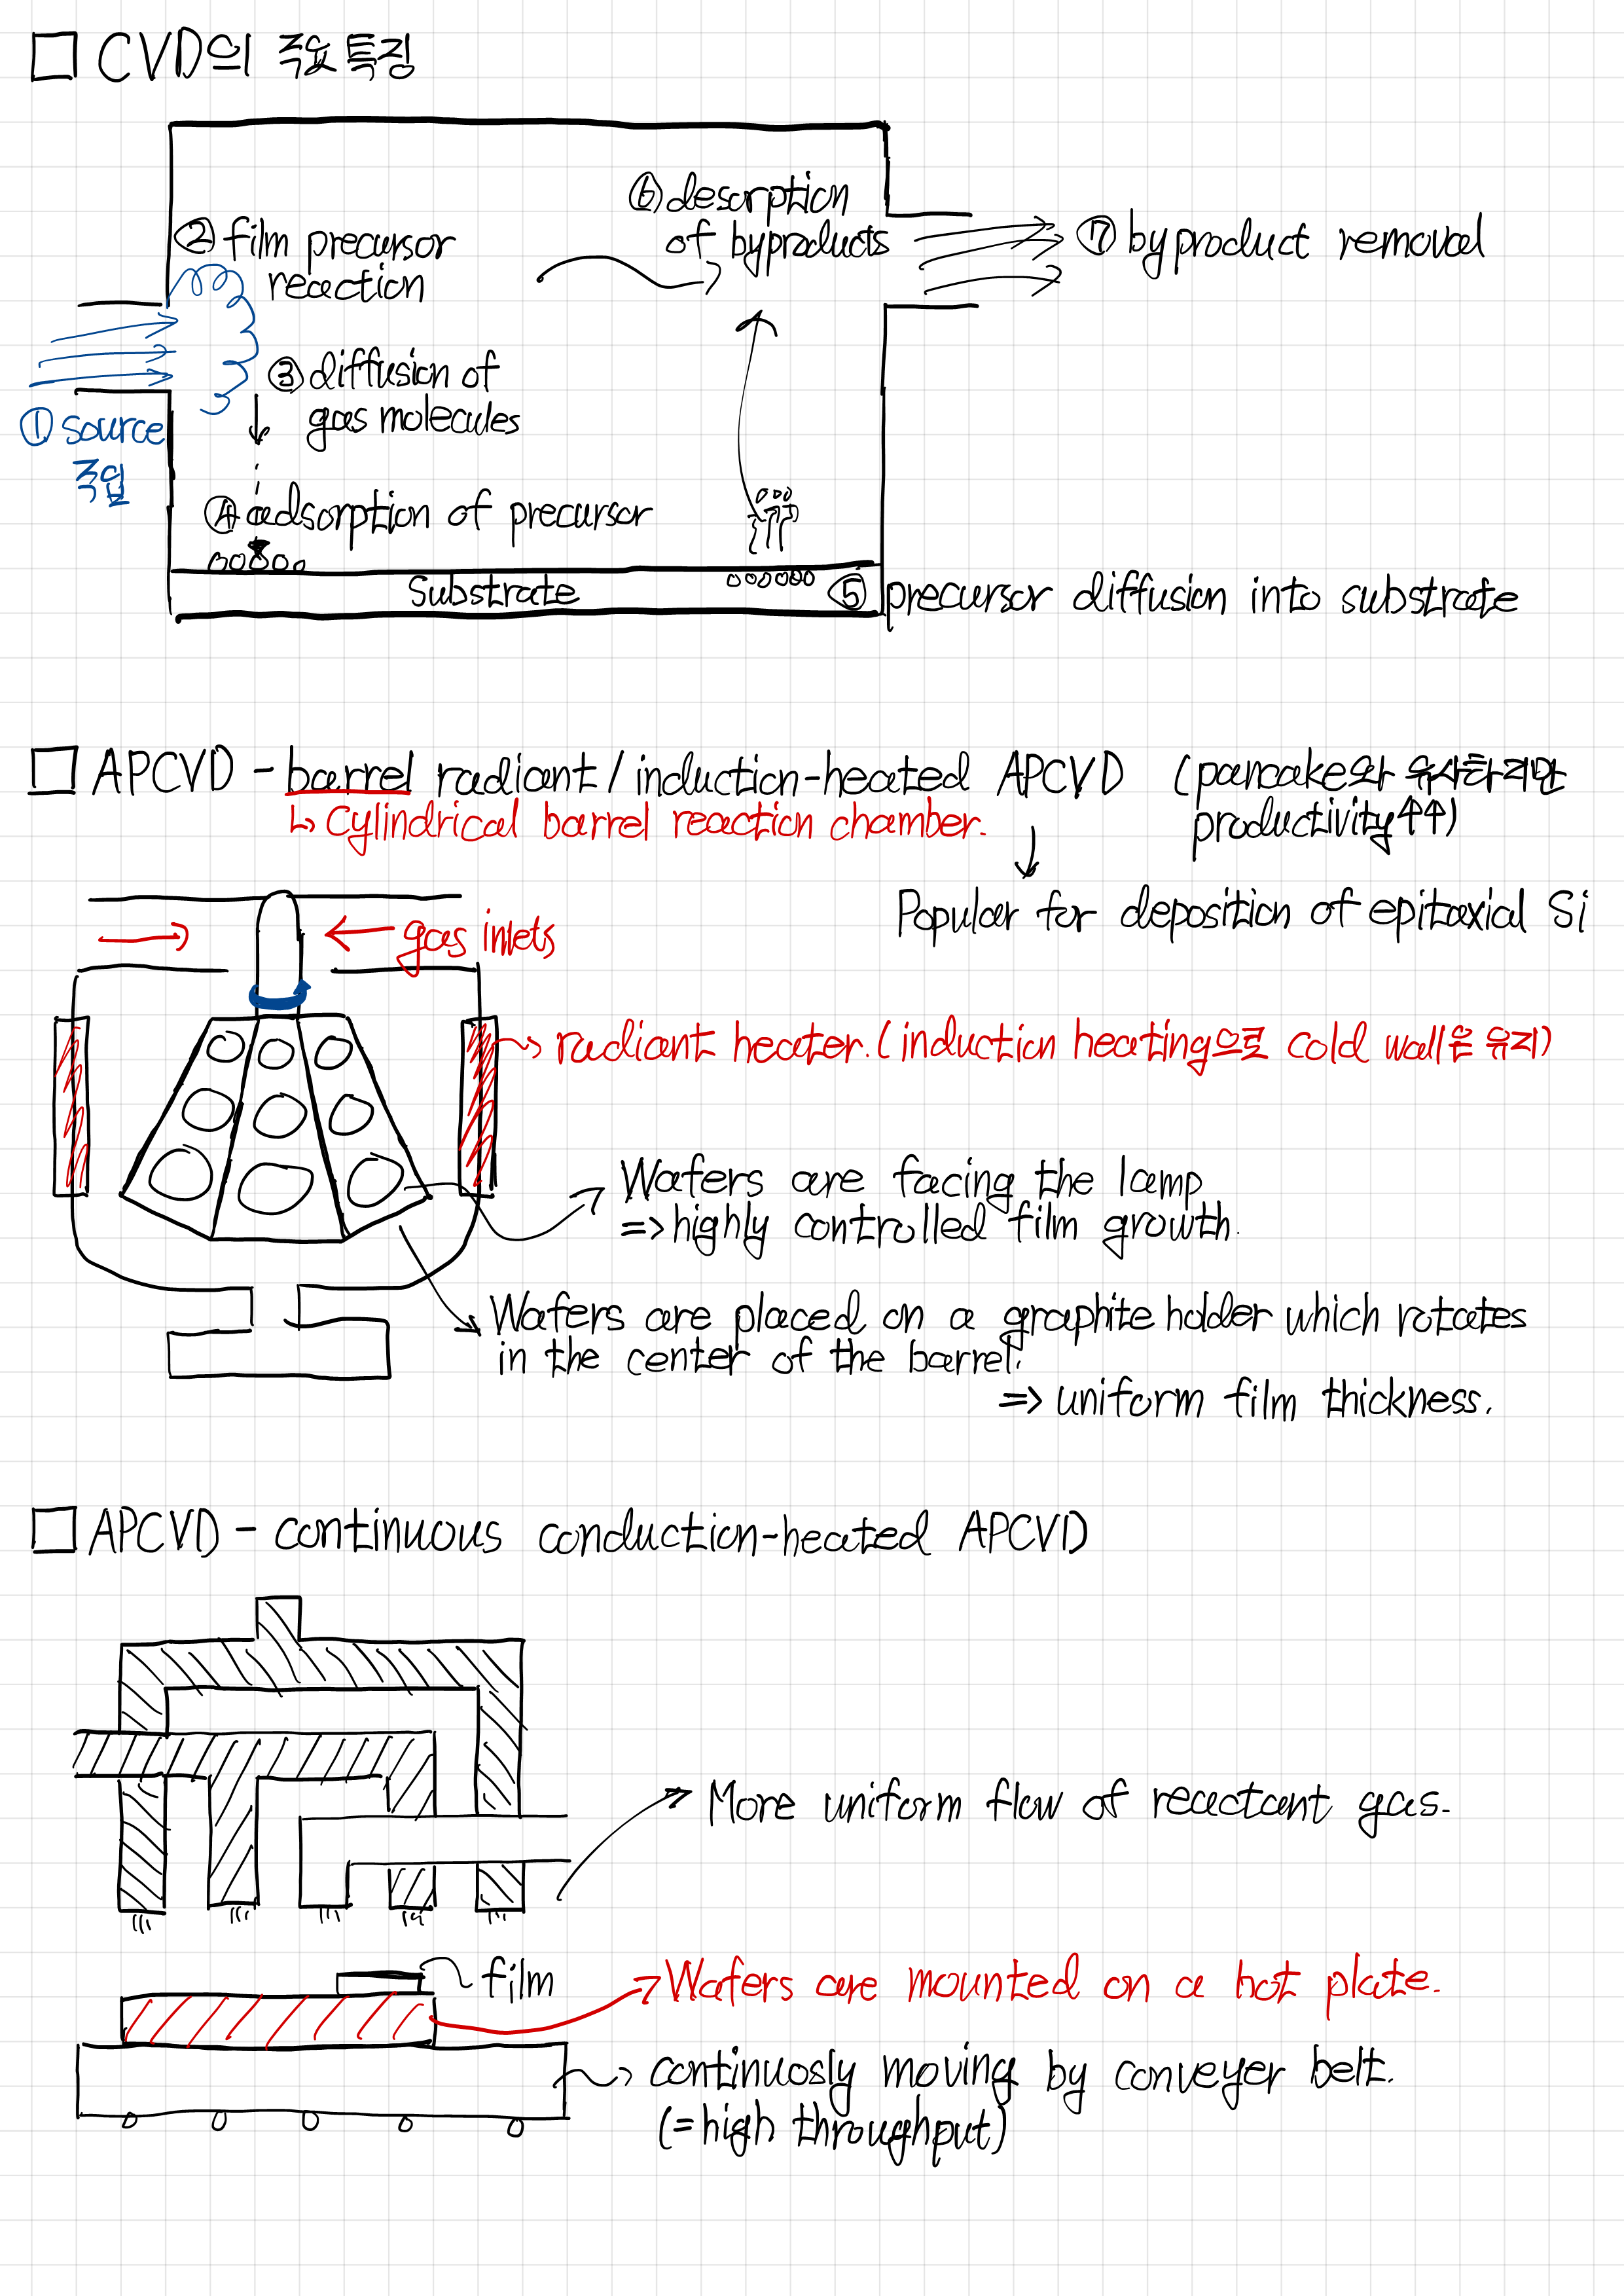 CVD의 주요 특징
⑥ desorption
of byproducts
② film precursor
reaction
⑦ byproduct removal
③ diffusion of
gas molecules
① source
주입
④ adsorption of precursor
Substrate
⑤ precursor diffusion into substrate
APCVD - barrel radiant / induction-heated APCVD (pancake와 유사하지만
productivity↑↑)
↳ Cylindrical barrel reaction chamber.
↓
Popular for deposition of epitaxial Si
gas inlets
radiant heater. (induction heating으로 cold wall은 유지)
Wafers are facing the lamp
=> highly controlled film growth.
Wafers are placed on a graphite holder which rotates
in the center of the barrel.
=> uniform film thickness.
APCVD - continuous conduction-heated APCVD
More uniform flow of reactant gas.
film
Wafers are mounted on a hot plate.
continuosly moving by conveyer belt.
(= high throughput)